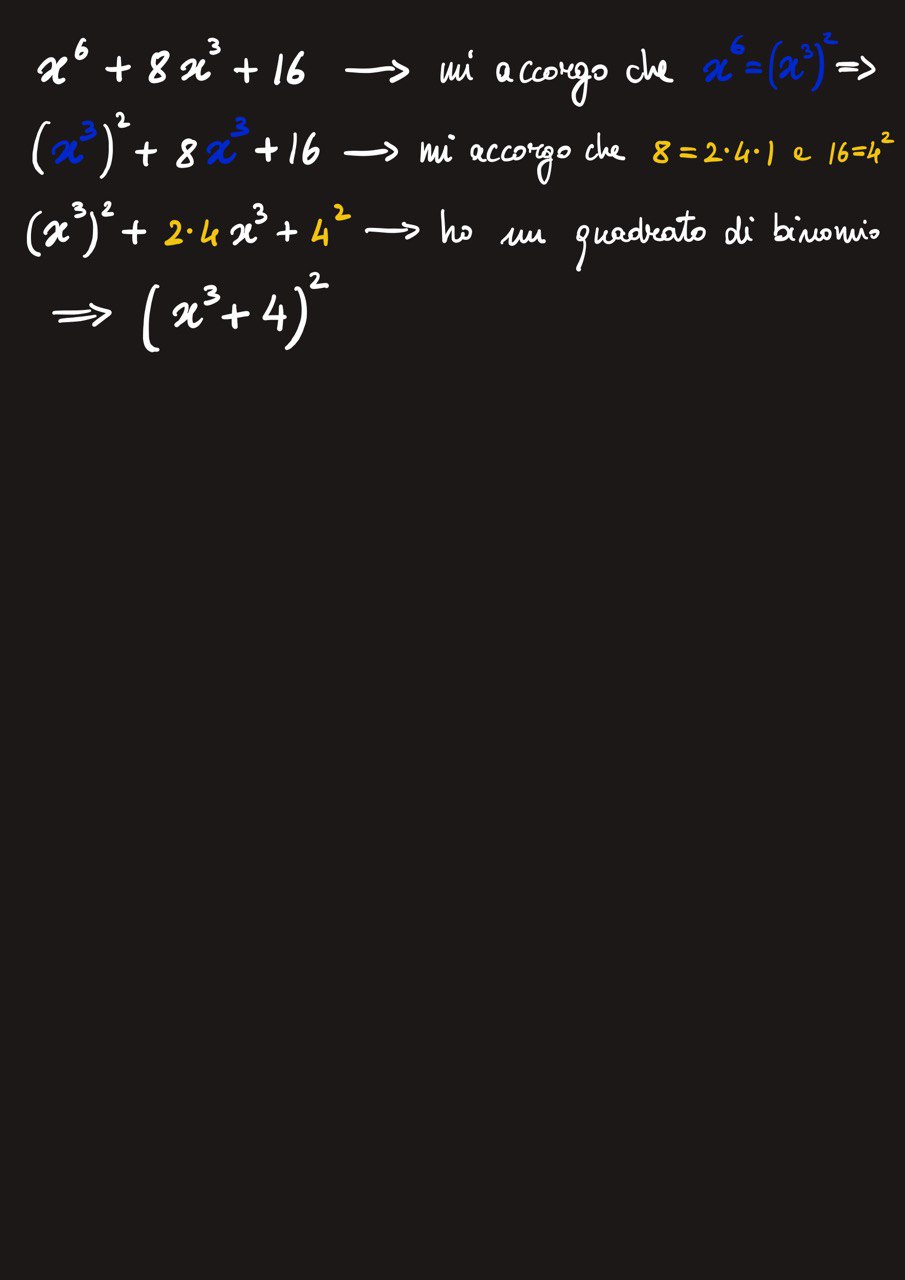 x⁶ + 8x³ + 16 → mi accorgo che x⁶ = (x³)² ⇒
(x³)² + 8x³ + 16 → mi accorgo che 8 = 2·4·1 e 16 = 4²
(x³)² + 2·4x³ + 4² → ho un quadrato di binomio
⇒ (x³ + 4)²